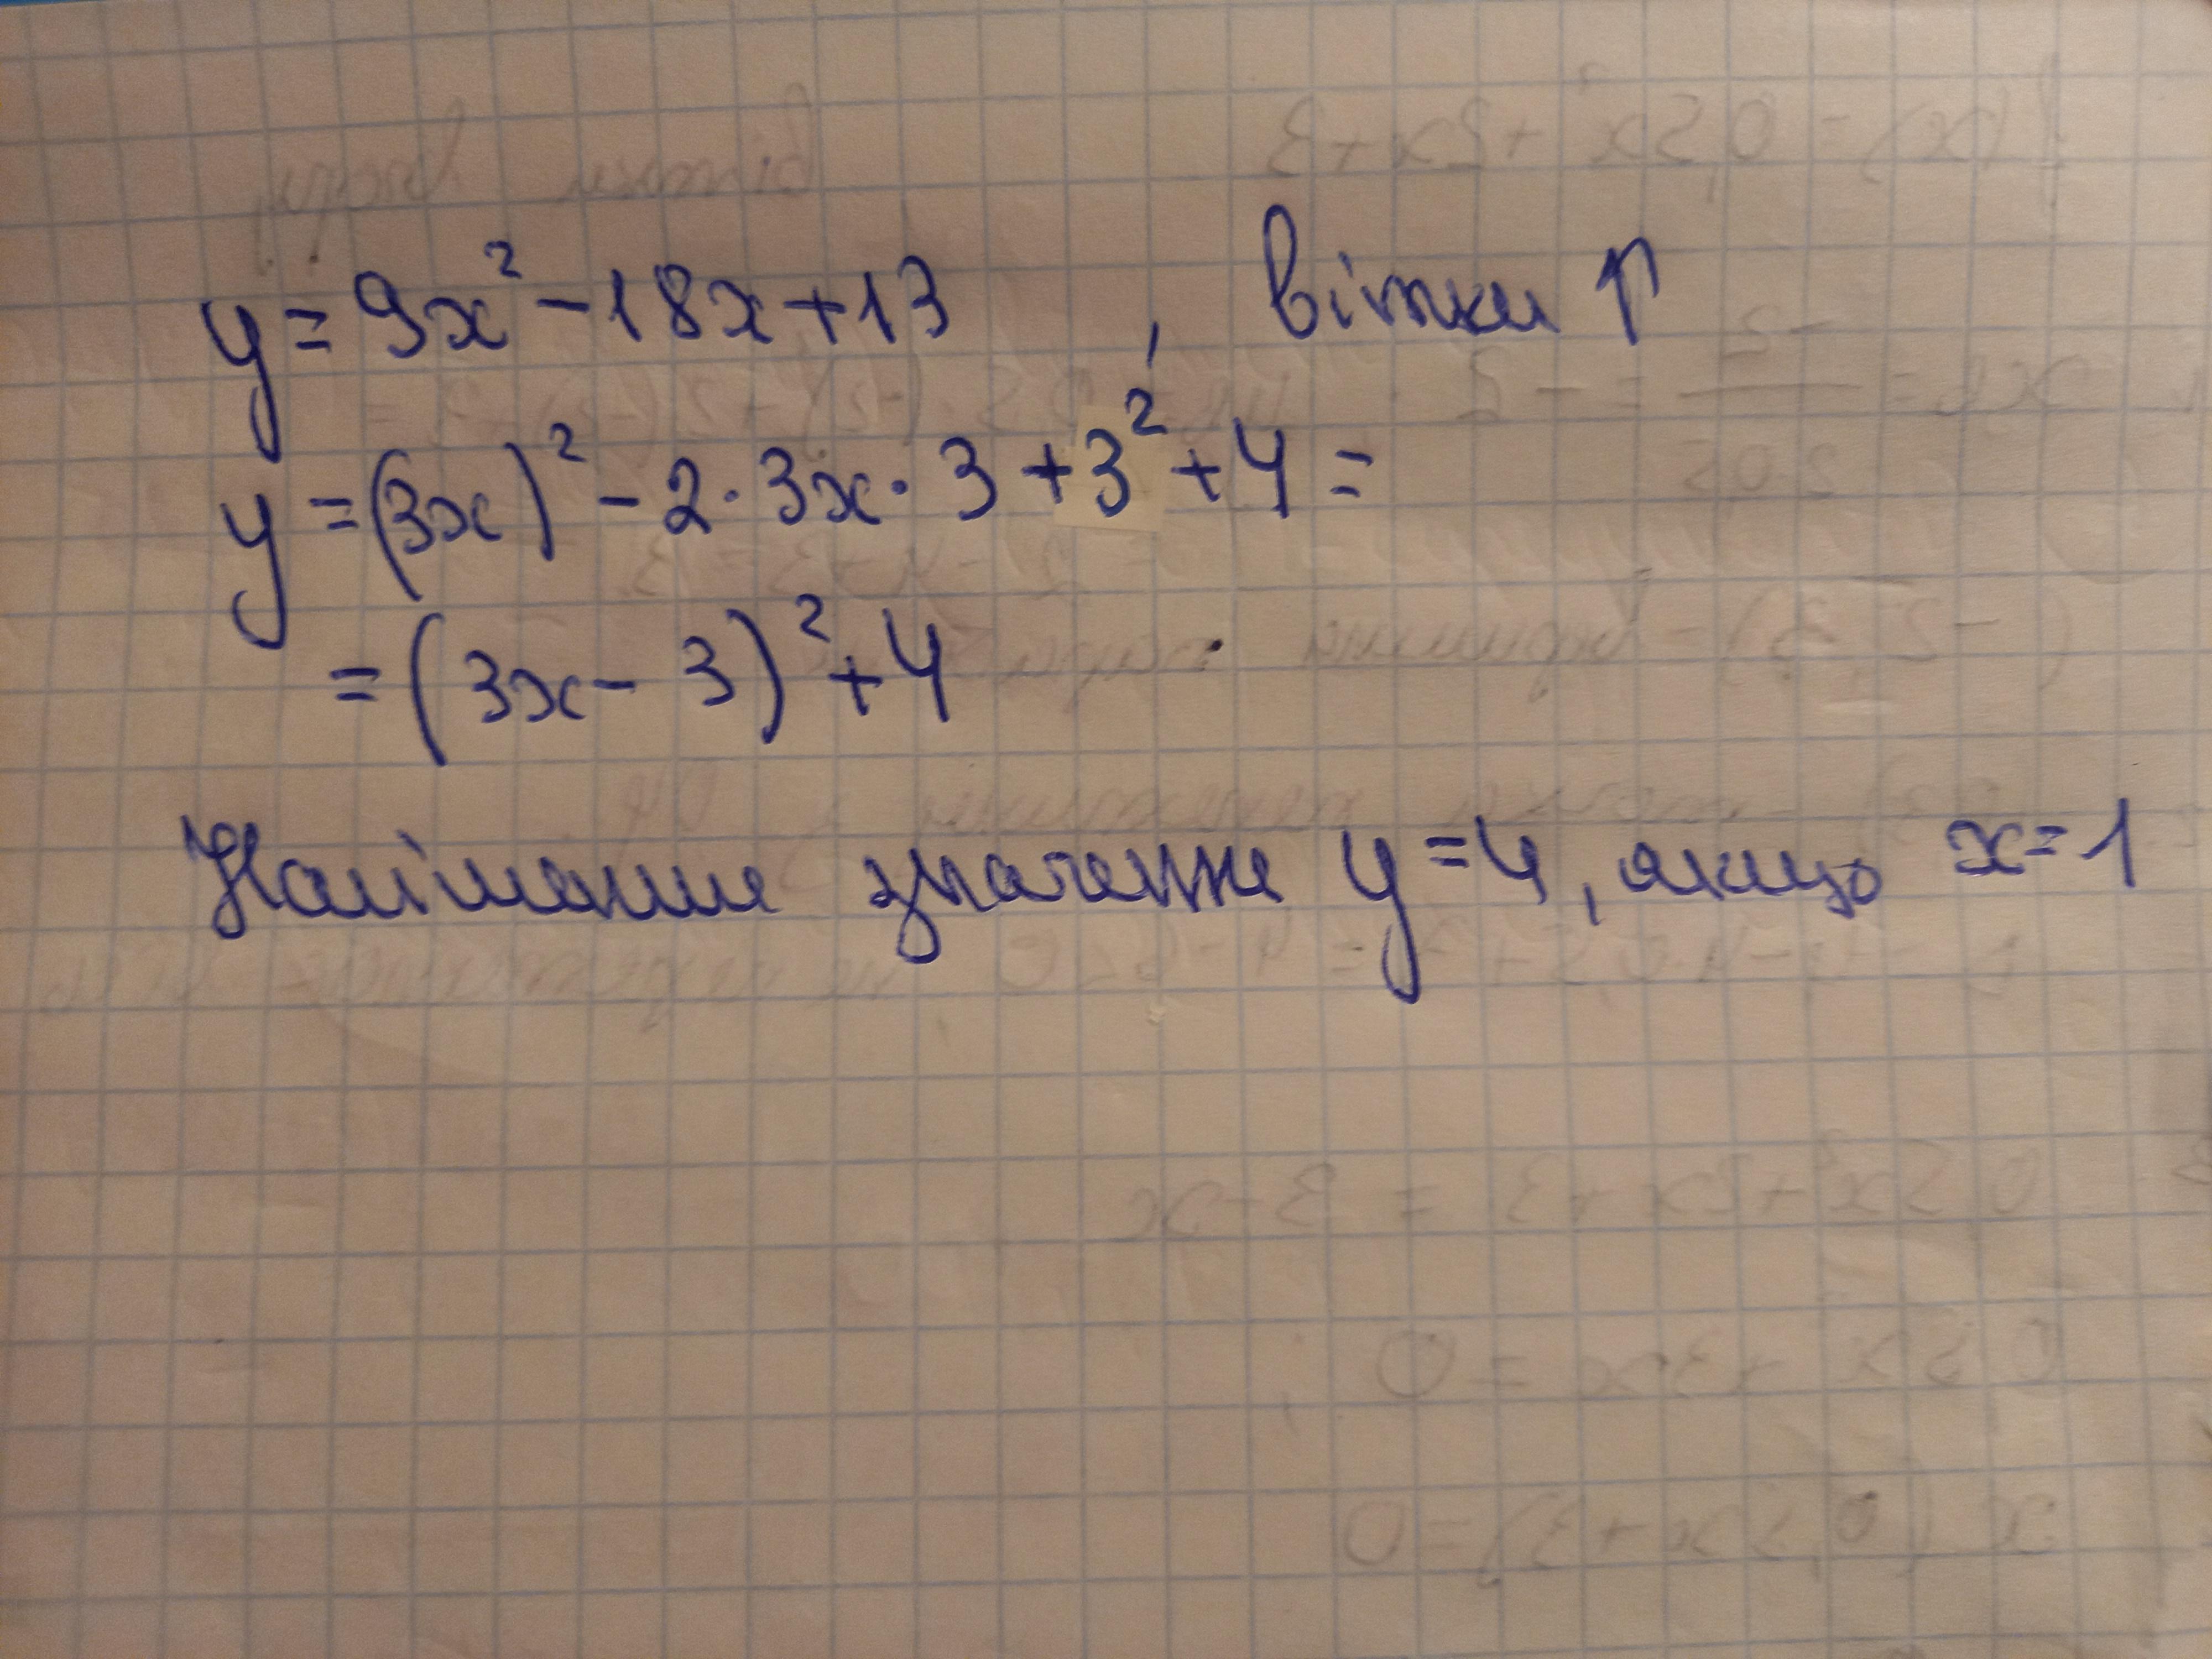 y = 9x² - 18x + 13 , вітки ↑
y = (3x)² - 2·3x·3 + 3² + 4 =
= (3x - 3)² + 4
Найменше значення y = 4, якщо x = 1